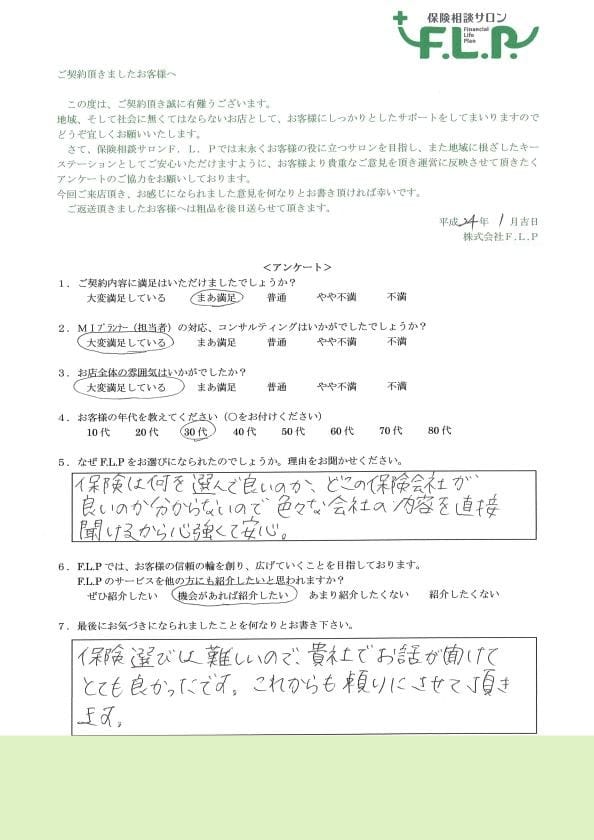 保険相談サロン
F.L.P.
Financial
Life
Plan
ご契約頂きましたお客様へ
この度は、ご契約頂き誠に有難うございます。
地域、そして社会に無くてはならないお店として、お客様にしっかりとしたサポートをしてまいりますので
どうぞ宜しくお願いいたします。
さて、保険相談サロンF．L．Pでは末永くお客様の役に立つサロンを目指し、また地域に根ざしたキー
ステーションとしてご安心いただけますように、お客様より貴重なご意見を頂き運営に反映させて頂きたく
アンケートのご協力をお願いしております。
今回ご来店頂き、お感じになられました意見を何なりとお書き頂ければ幸いです。
ご返送頂きましたお客様へは粗品を後日送らせて頂きます。
平成 24 年 1 月吉日
株式会社F.L.P
＜アンケート＞
1．ご契約内容に満足はいただけましたでしょうか？
大変満足している　まあ満足　普通　やや不満　不満
2．MIプランナー（担当者）の対応、コンサルティングはいかがでしたでしょうか？
大変満足している　まあ満足　普通　やや不満　不満
3．お店全体の雰囲気はいかがでしたか？
大変満足している　まあ満足　普通　やや不満　不満
4．お客様の年代を教えてください（○をお付けください）
10代　20代　30代　40代　50代　60代　70代　80代
5．なぜF.L.Pをお選びになられたのでしょうか。理由をお聞かせください。
保険は何を選んで良いのか、どこの保険会社が
良いのか分からないので色々な会社の内容を直接
聞けるから心強くて安心。
6．F.L.Pでは、お客様の信頼の輪を創り、広げていくことを目指しております。
F.L.Pのサービスを他の方にも紹介したいと思われますか？
ぜひ紹介したい　機会があれば紹介したい　あまり紹介したくない　紹介したくない
7．最後にお気づきになられましたことを何なりとお書き下さい。
保険選びは難しいので、貴社でお話が聞けて
とても良かったです。これからも頼りにさせて頂き
ます。